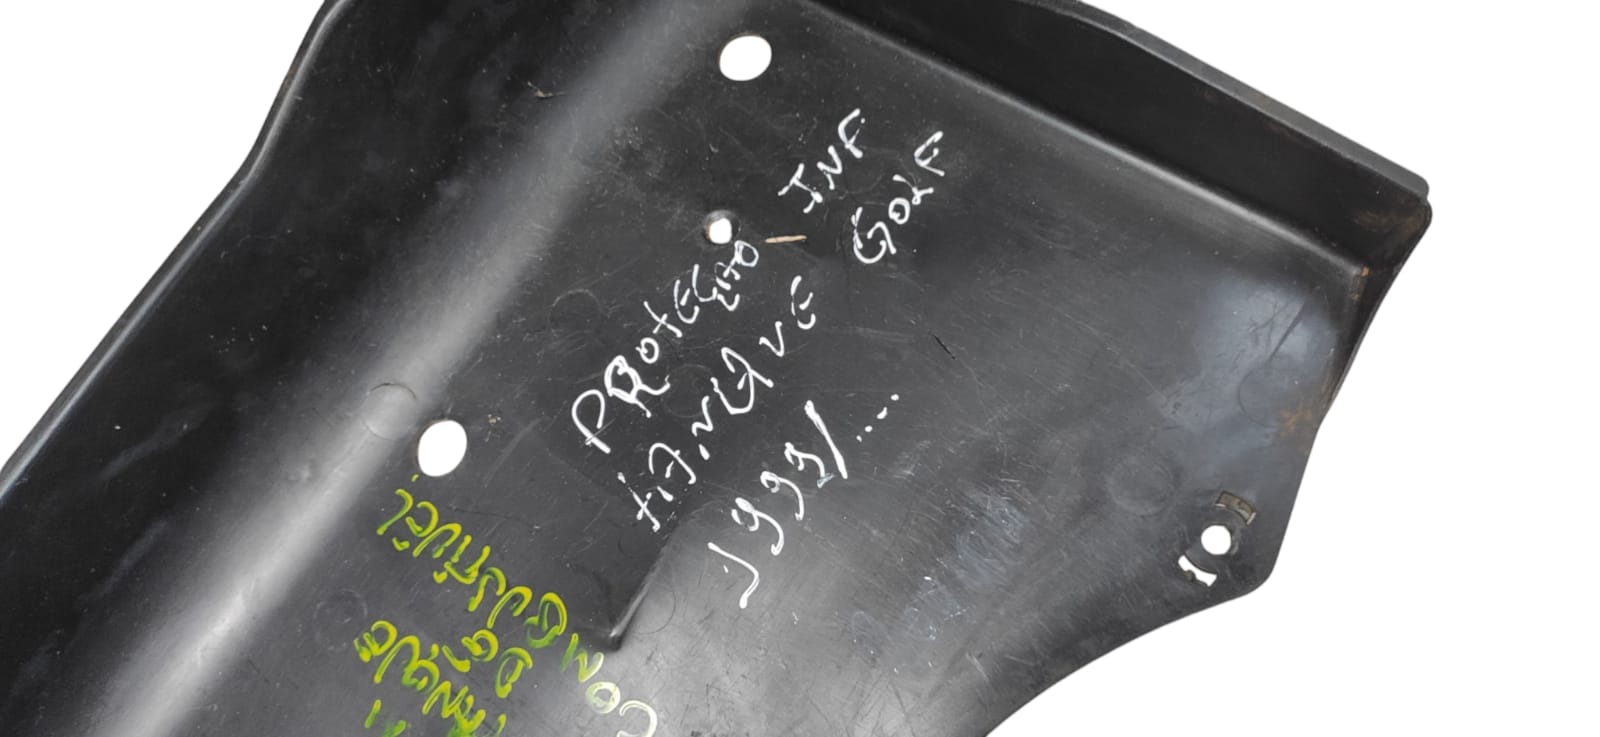 PROTEÇÃO INF
TANQUE GOLF
1999/....
TANQUE
DE
COMBUSTÍVEL